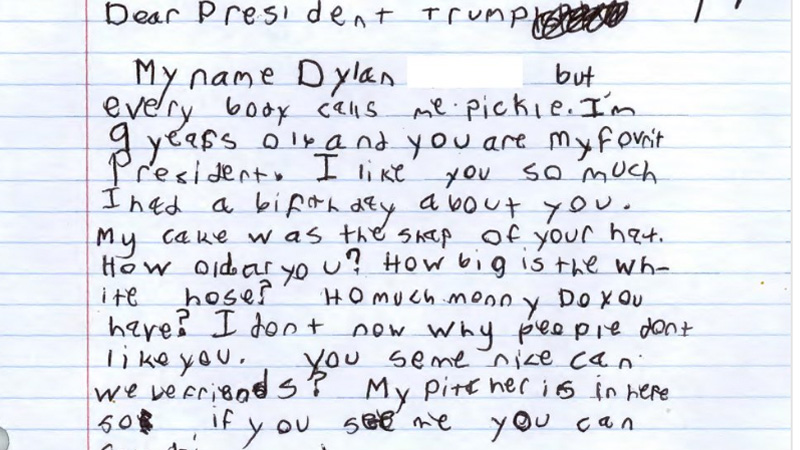 Dear President Trump
My name Dylan but
every body calls me pickle. I'm
9 years old and you are my fovrit
President. I like you so much
I had a birthday about you.
My cake was the shap of your hat.
How old ar you? How big is the wh-
ite hose? Ho much monny Do you
have? I dont now why people dont
like you. You seme nice can
we be friends? My pitcher is in here
so if you see me you can